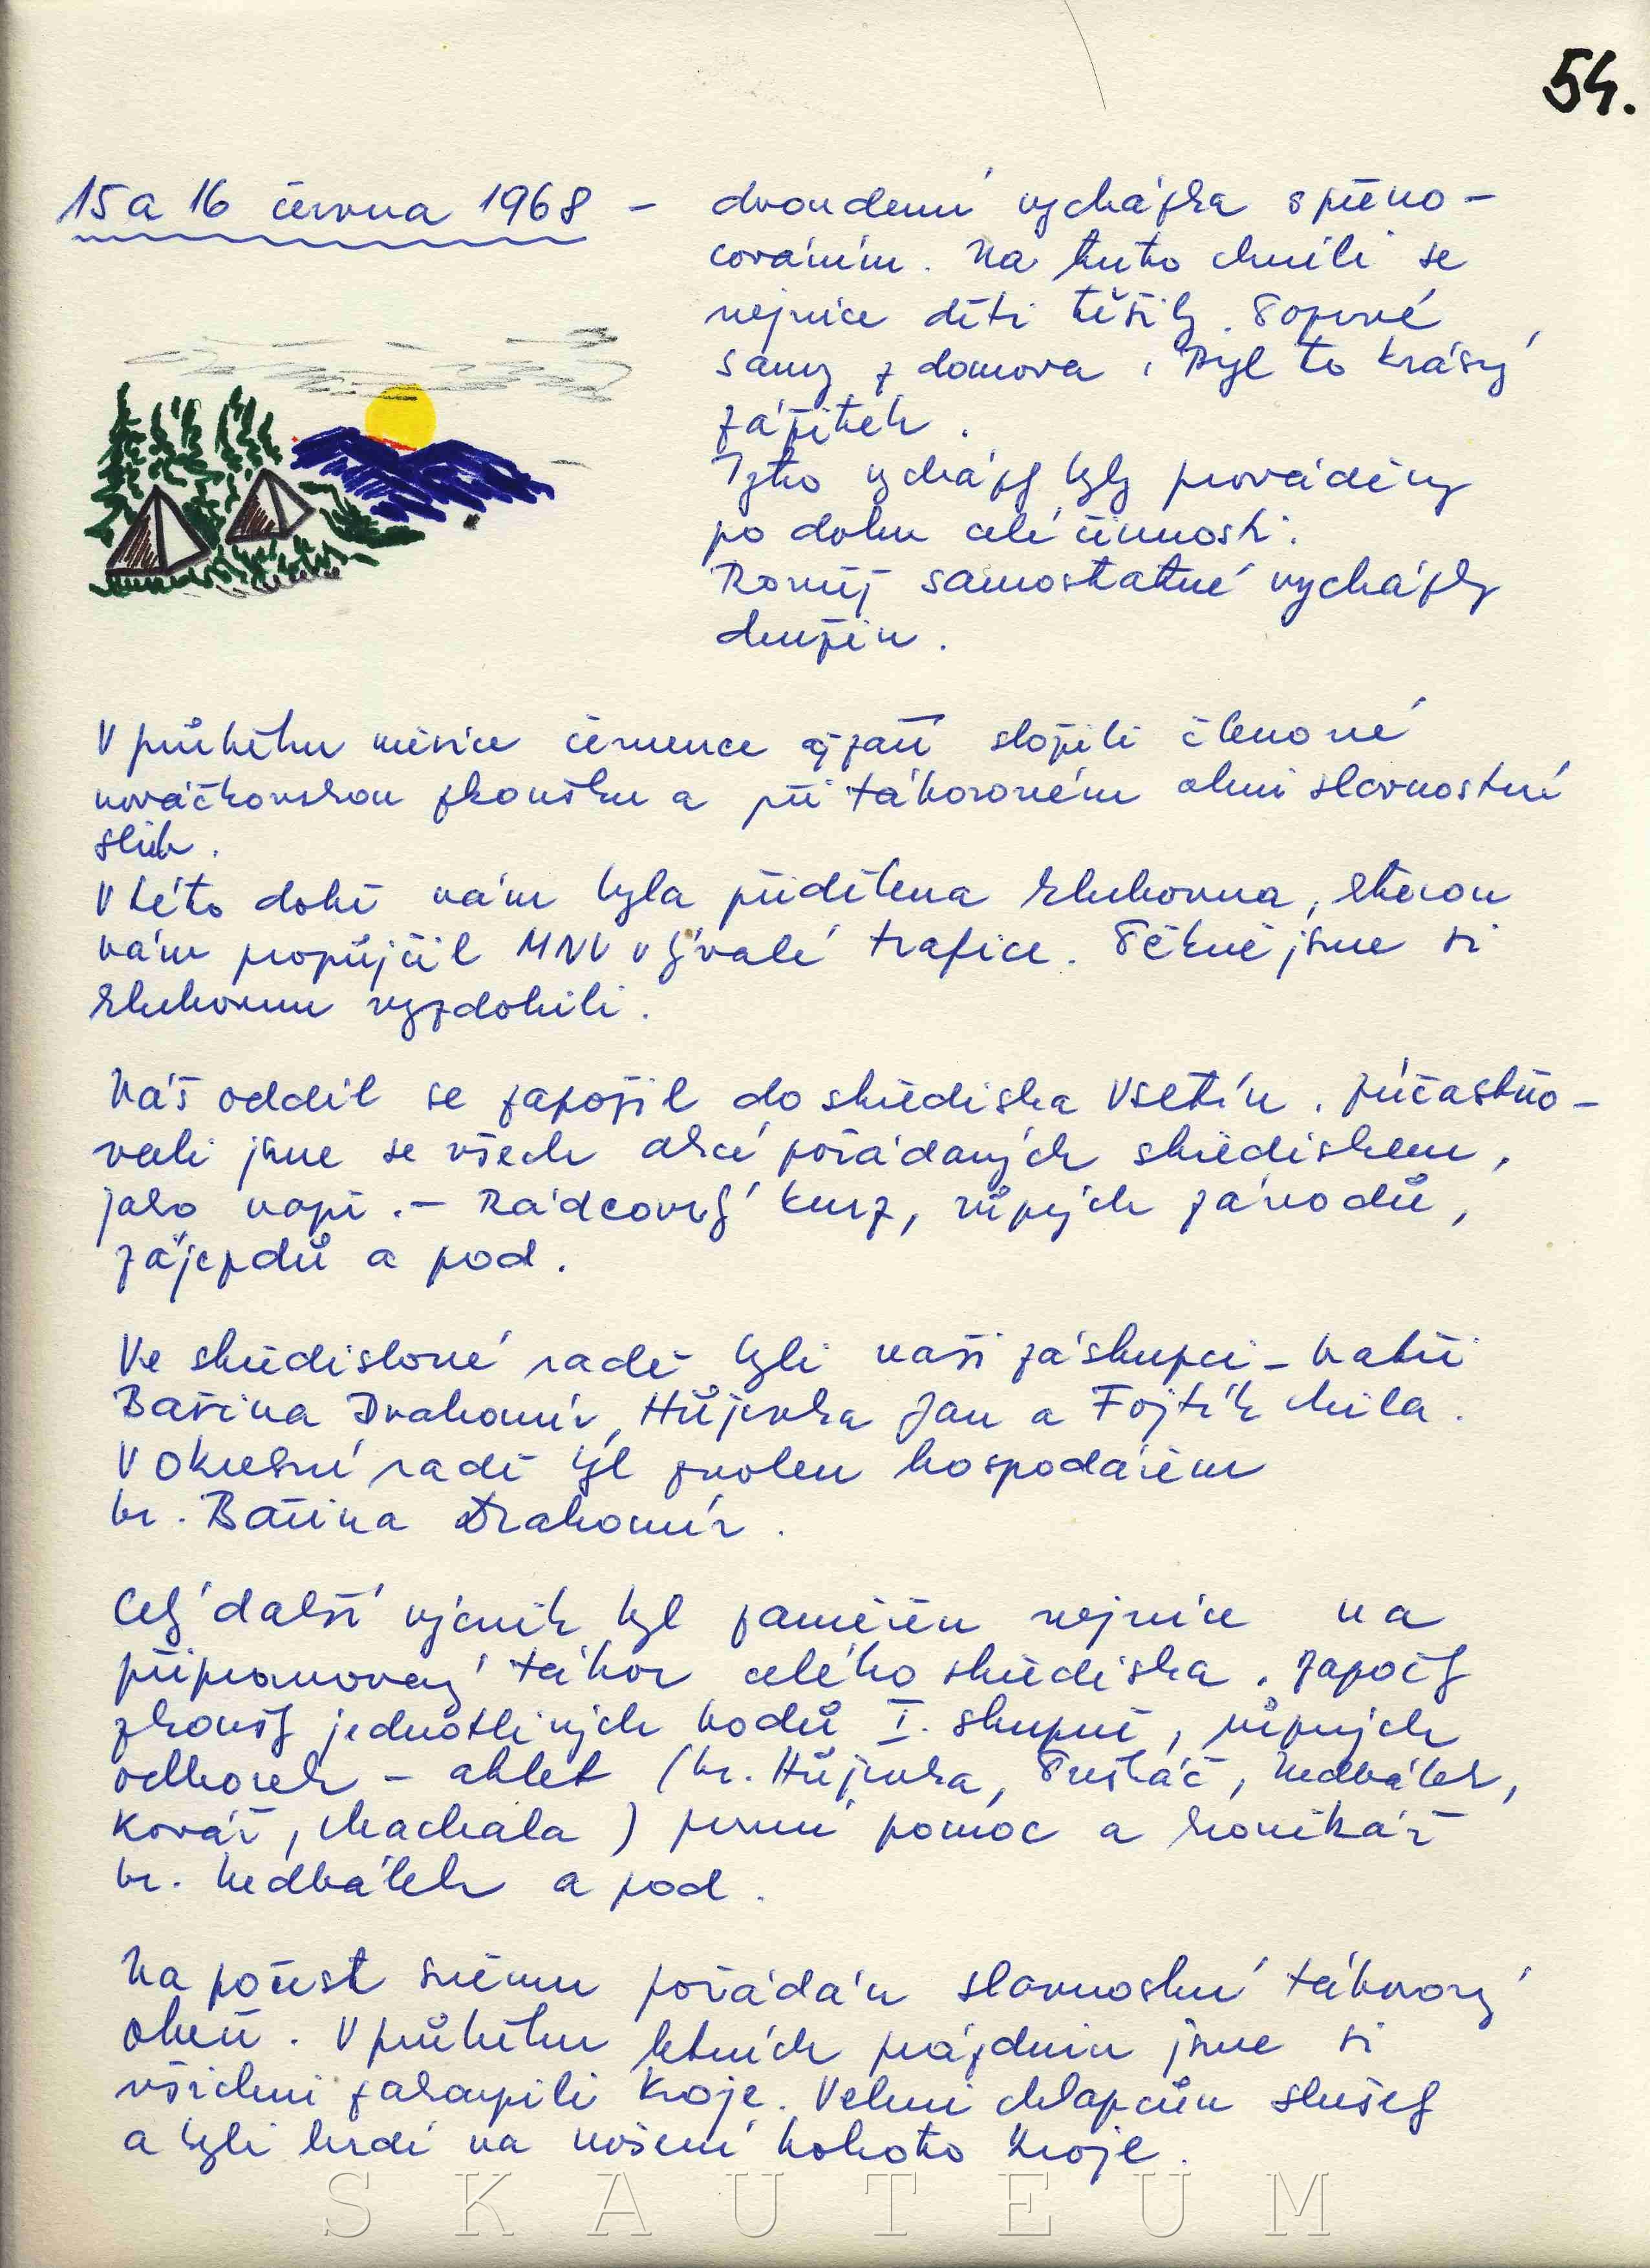 54.
15 a 16 června 1968 - dvoudenní vycházka s přeno-
cováním. Na tuto chvíli se
nejvíce děti těšily. Poprvé
samy z domova. Byl to krásný
zážitek.
Tyto vycházky byly prováděny
po dobu celé činnosti.
Rovněž samostatné vycházky
družin.
V průběhu měsíce července a září složili členové
nováčkovskou zkoušku a při táborovém ohni slavnostní
slib.
V této době nám byla přidělena klubovna, kterou
nám propůjčil MNV v bývalé trafice. Pěkně jsme si
klubovnu vyzdobili.
Náš oddíl se zapojil do střediska Vsetín. Zúčastňo-
vali jsme se všech akcí pořádaných střediskem,
jako např. - Rádcovský kurz, různých závodů,
zájezdů a pod.
Ve střediskové radě byli naši zástupci - bratři
Bařina Drahomír, Hůjevka Jan a Fojtík Mila.
V okresní radě byl zvolen hospodářem
br. Bařina Drahomír.
Celý další výcvik byl zaměřen nejvíce na
připravovaný tábor celého střediska. Započaly
zkoušky jednotlivých bodů I. stupně, různých
odborek - atlet (br. Hůjevka, Nedbálek,
Kovář, Machala) první pomoc a kronikář
br. Nedbálek a pod.
Na počest sněmu pořádán slavnostní táborový
oheň. V průběhu letních prázdnin jsme si
všichni zakoupili kroje. Velmi chlapcům slušely
a byli hrdi na nošení tohoto kroje.
SKAUTEUM